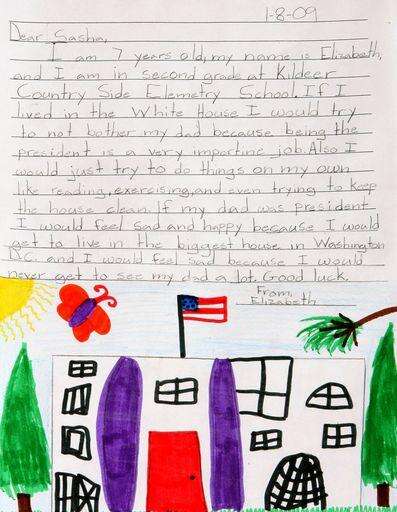 1-8-09
Dear Sasha,
I am 7 years old, my name is Elizabeth,
and I am in second grade at Kildeer
Country Side Elemetry School. If I
lived in the White House I would try
to not bother my dad because being the
president is a very importinc job. Also I
would just try to do things on my own
like reading, exercising, and even trying to keep
the house clean. If my dad was president
I would feel sad and happy because I would
get to live in the biggest house in Washington
D.C. and I would feel sad because I would
never get to see my dad a lot. Good luck.
From,
Elizabeth